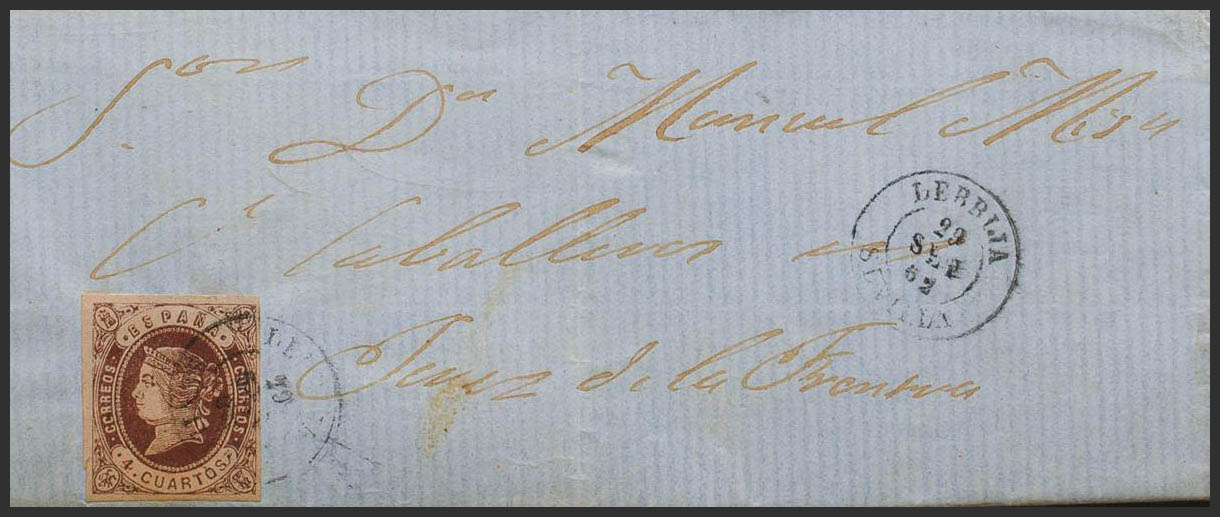 S.ᵒⁿ Dⁿ Manuel Misa
C. Caballeros
Jerez de la Frontera
LEBRIJA
22
SEP
62
SEVILLA
ESPAÑA
CORREOS
CORREOS
4 CUARTOS
LE